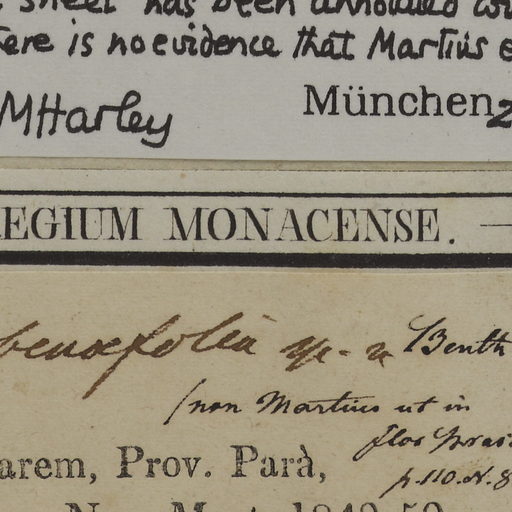 sheet has been annotated
ere is no evidence that Martius e
MHarley München 2
REGIUM MONACENSE. —
benæfolia sp. n Benth
(non Martius ut in
flor Bras
arem, Prov. Parà,
p. 110. N. 8